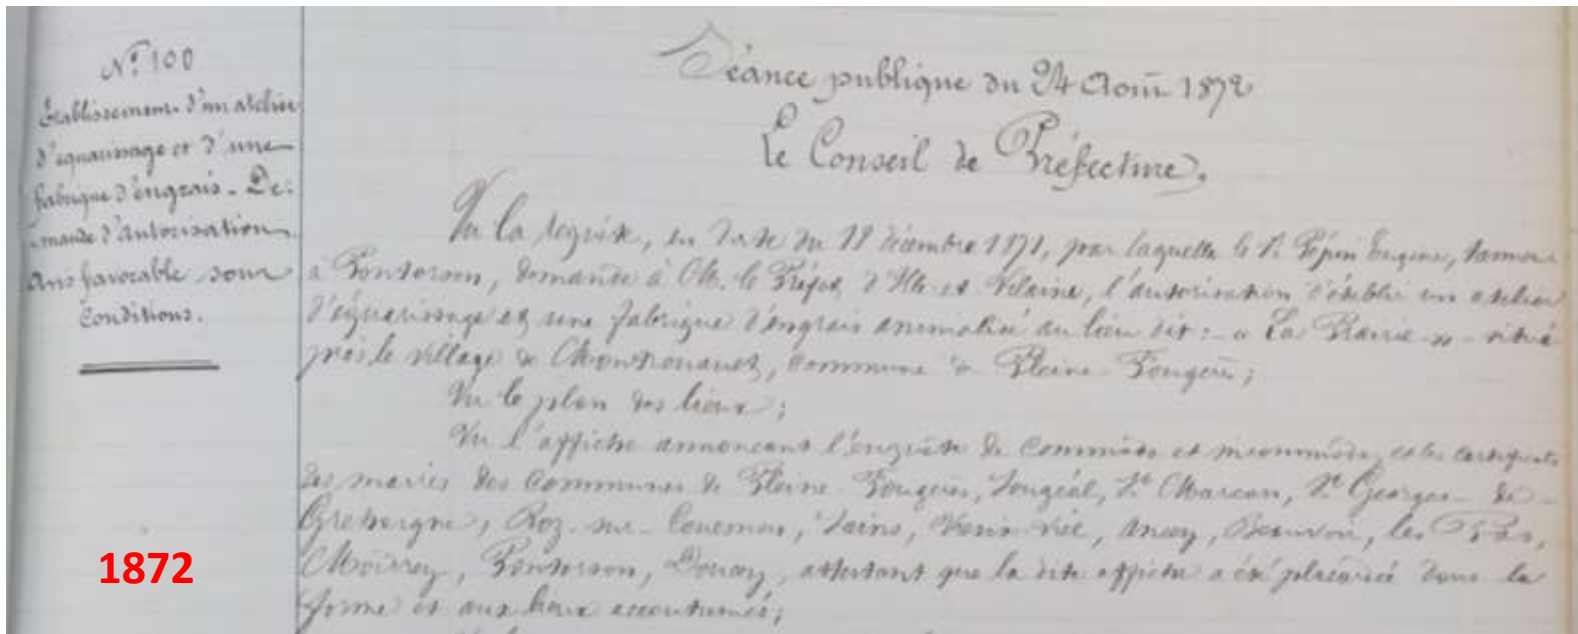 N° 100
Etablissement d'un atelier
d'équarissage et d'une
fabrique d'engrais. De-
mande d'autorisation
Avis favorable sous
Conditions.
Séance publique du 24 Août 1872
Le Conseil de Préfecture.
Vu la requête, en date du 18 décembre 1871, par laquelle le Sr Pépin Eugène, tanneur
à Pontorson, demande à M. le Préfet d'Ille et Vilaine, l'autorisation d'établir un atelier
d'équarissage et une fabrique d'engrais animalisé au lieu dit : « La Prairie » situé
près le village de, Commune de Pleine-Fougères ;
Vu le plan des lieux ;
Vu l'affiche annonçant l'enquête de Commodo et incommodo, et les certificats
des maires des Communes de Pleine-Fougères, Sougéal, St Marcan, St Georges-de-
Grehaigne, Roz-sur-Couesnon, Sains, Vieux-Viel, Aucey, Beauvoir, les Pas,
Moidrey, Pontorson, Boucey, attestant que la dite affiche a été placardée dans la
forme et aux lieux accoutumés ;
1872